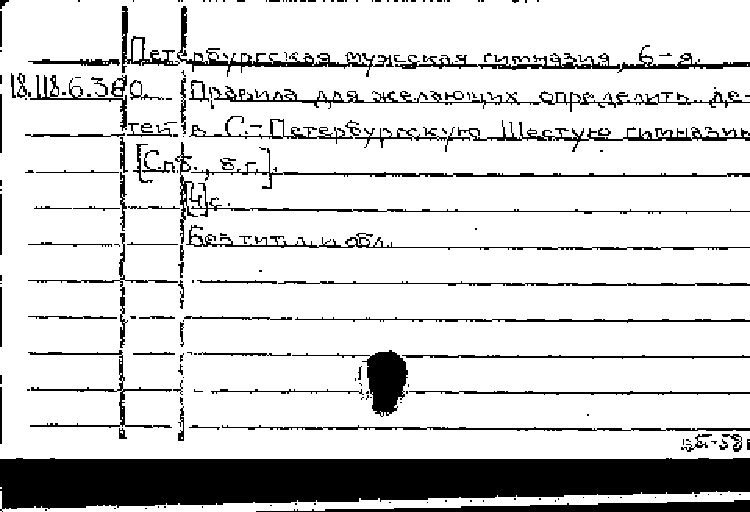 Петербургская мужская гимназия, 6-я.
18.118.6.380. Правила для желающих определить де-
тей в С.-Петербургскую Шестую гимназию
[Спб., б.г.].
[4]с.
Без тит. л. и обл.